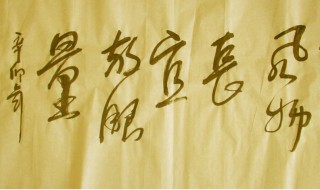 風物
長
宜
放眼
量
辛卯年